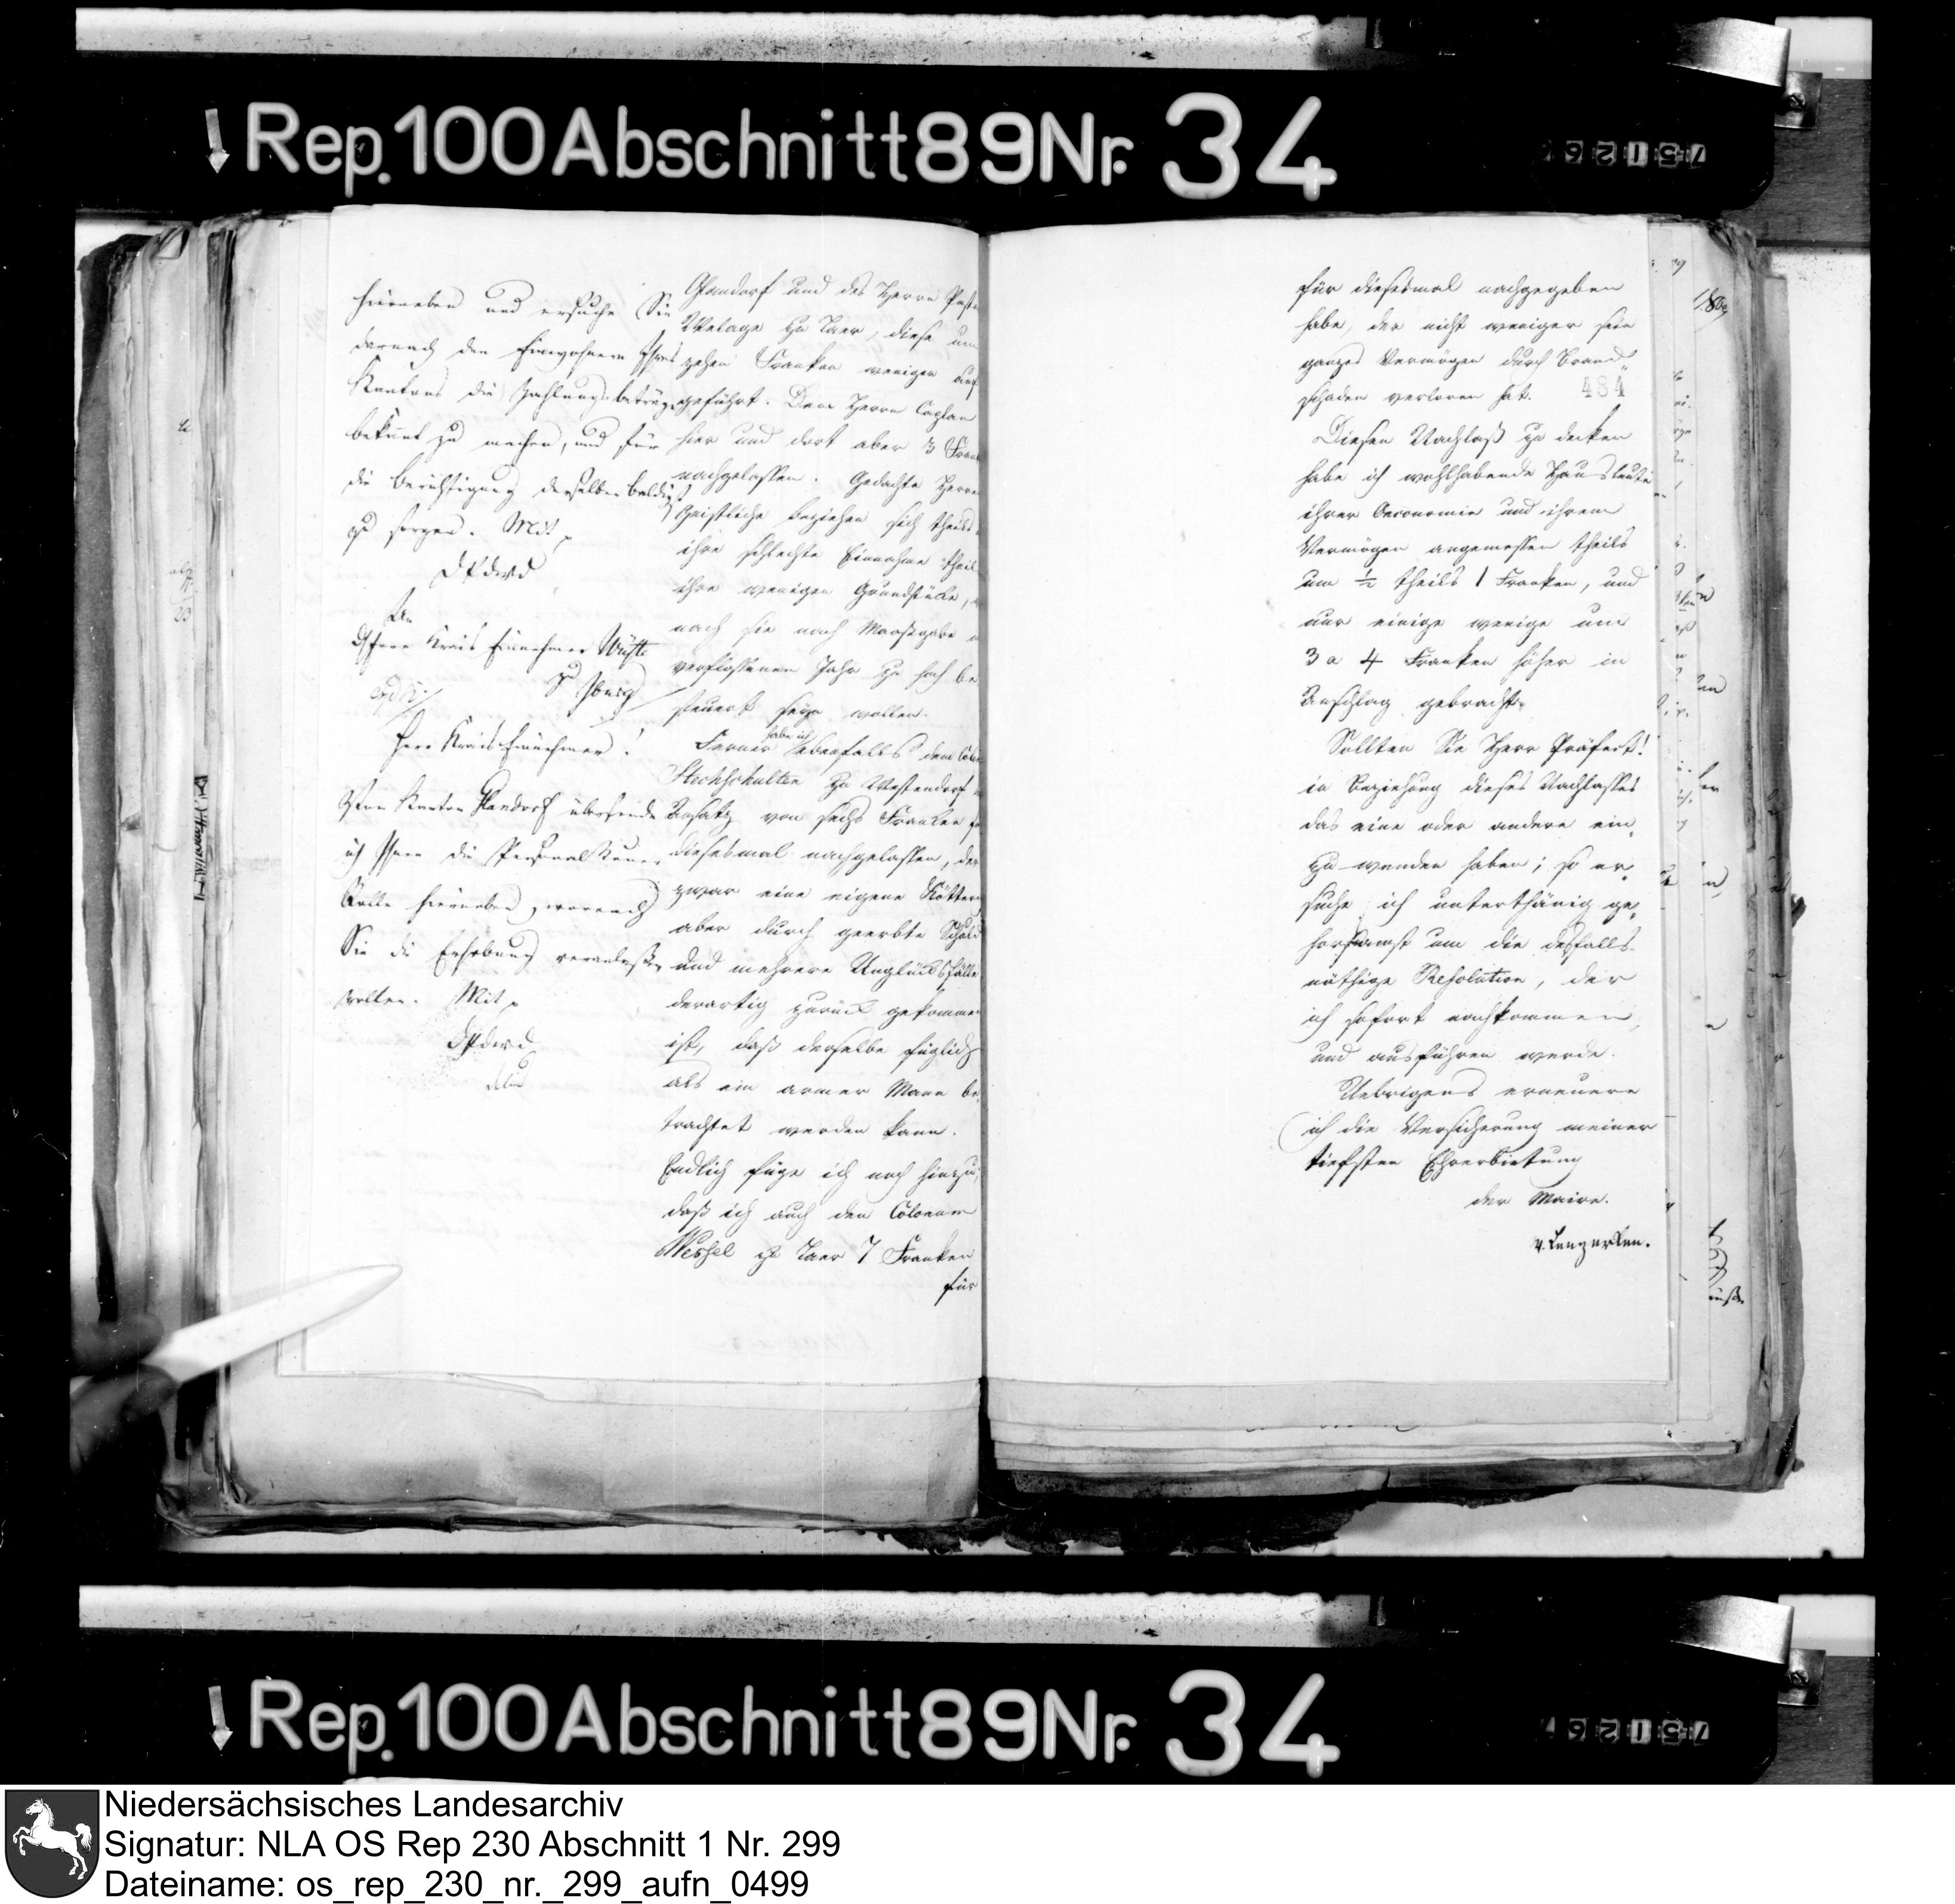 Rep. 100 Abschnitt 89 Nr. 34
hierneben und ersuche Sie
darnach den Einwohnern Ihres
Kantons die Zahlungsbeträge
bekannt zu machen, und für
die Berichtigung derselben baldigst
zu sorgen. Mit
An
Herrn Kreis Einnehmer Wüste
zu Iburg
Herr Kreis Einnehmer!
Vom Kanton Glandorf übersende
ich Ihnen die Personalsteuer
Rolle hierneben, wornach
Sie die Erhebung veranlassen
wollen. Mit
Glandorf und des Herrn Past
Welage zu Laer, diese um
zehen Franken weniger auf
geführt. Dem Herrn Caplan
hier und dort aber 3 Frank
nachgelassen. Gedachte Herren
Geistliche beziehen sich theils
ihre schlechte Einnahme theils
ihre wenigen Grundstücke,
nach sie nach Maaßgabe
verflossenem Jahr zu hoch be
steuert seyn wollen.
Ferner habe ich ebenfalls dem
Stichschulten zu Westendorf
Ansatz von sechs Franken
diesesmal nachgelassen, der
zwar eine eigene Kötterey
aber durch geerbte Schuld
und mehrere Unglücksfälle
derartig zurück gekommen
ist, daß derselbe füglich
als ein armer Mann be
trachtet werden kann.
Endlich füge ich noch hinzu,
daß ich auch den Colonum
Wessel zu Laer 7 Franken
für
für diesesmal nachgegeben
habe, der nicht weniger sein
ganzes Vermögen durch Brand
schaden verloren hat. 484
Diesen Nachlaß zu decken
habe ich wohlhabende Hausleute
ihrer Oeconomie und ihrem
Vermögen angemessen theils
um ½ theils 1 Franken, und
nur einige wenige um
3 a 4 Franken höher in
Anschlag gebracht.
Sollten Sie Herr Präfect!
in Beziehung dieses Nachlasses
das eine oder andere ein
zu wenden haben; so er
suche ich unterthänig ge
horsamst um die desfalls
nöthige Resolution, der
ich sofort nachkommen,
und ausführen werde.
Uebrigens erneuere
ich die Versicherung meiner
tiefsten Ehrerbietung
der Maire.
v. Lengerken.
Rep. 100 Abschnitt 89 Nr. 34
Niedersächsisches Landesarchiv
Signatur: NLA OS Rep 230 Abschnitt 1 Nr. 299
Dateiname: os_rep_230_nr._299_aufn_0499